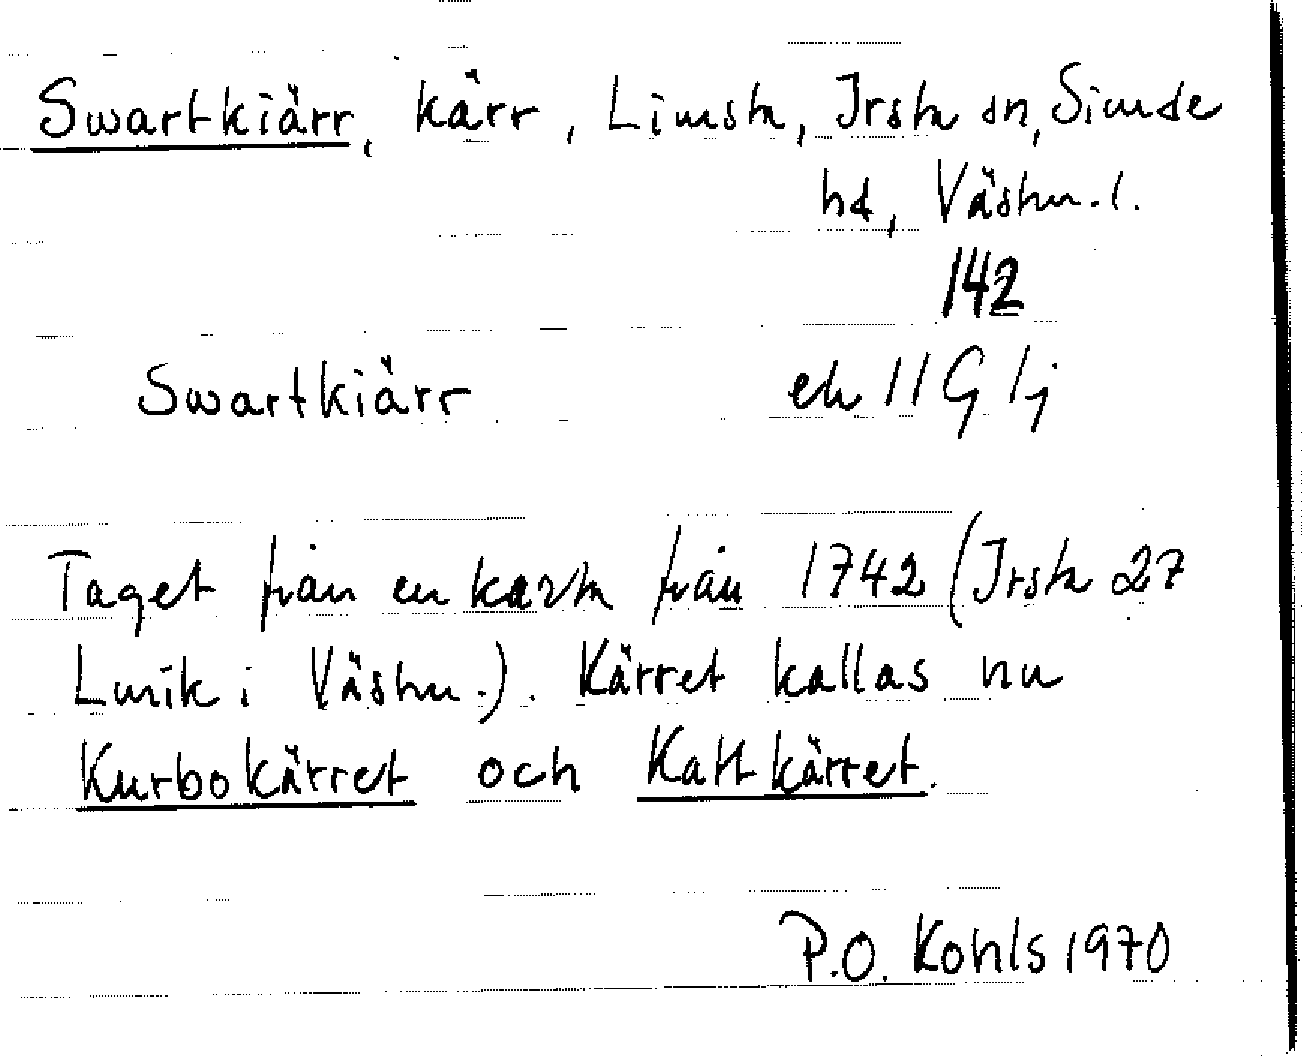 Swartkiärr, kärr, Limsta, Irsta sn, Siende
hd, Västm. l.
142
Swartkiärr ek 11 G 1j
Taget från en karta från 1742 (Irsta 27
Lmik i Västm.). Kärret kallas nu
Kurbokärret och Kattkärret.
P.O. Kohls 1970